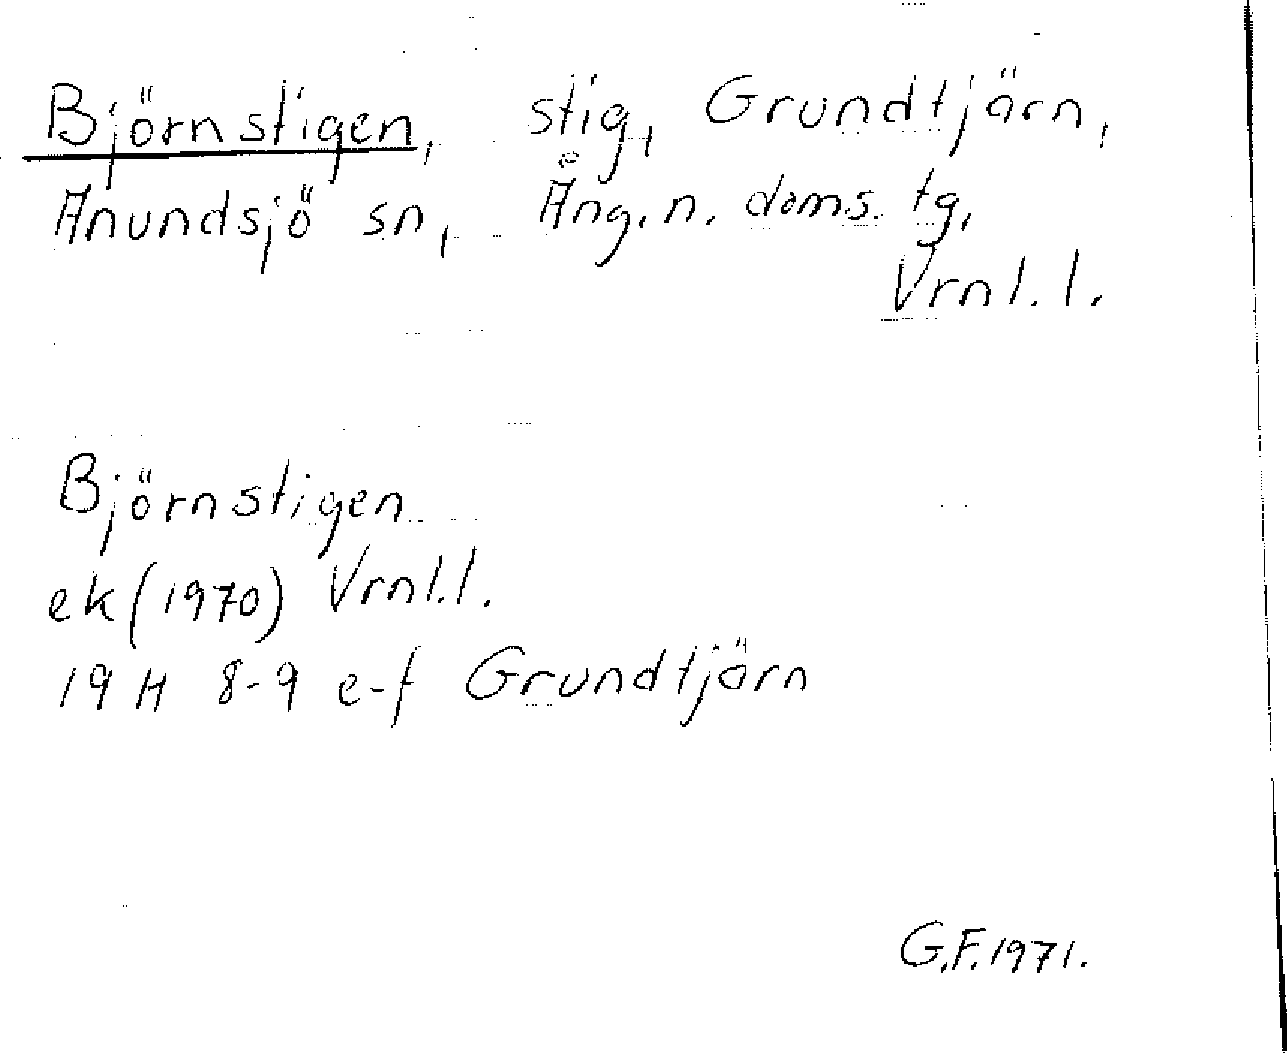 Björnstigen, stig, Grundtjärn,
Anundsjö sn, Ång. n. doms. tg.
Vrnl. l.
Björnstigen
ek (1970) Vrnl. l.
19 H 8-9 e-f Grundtjärn
G.F. 1971.